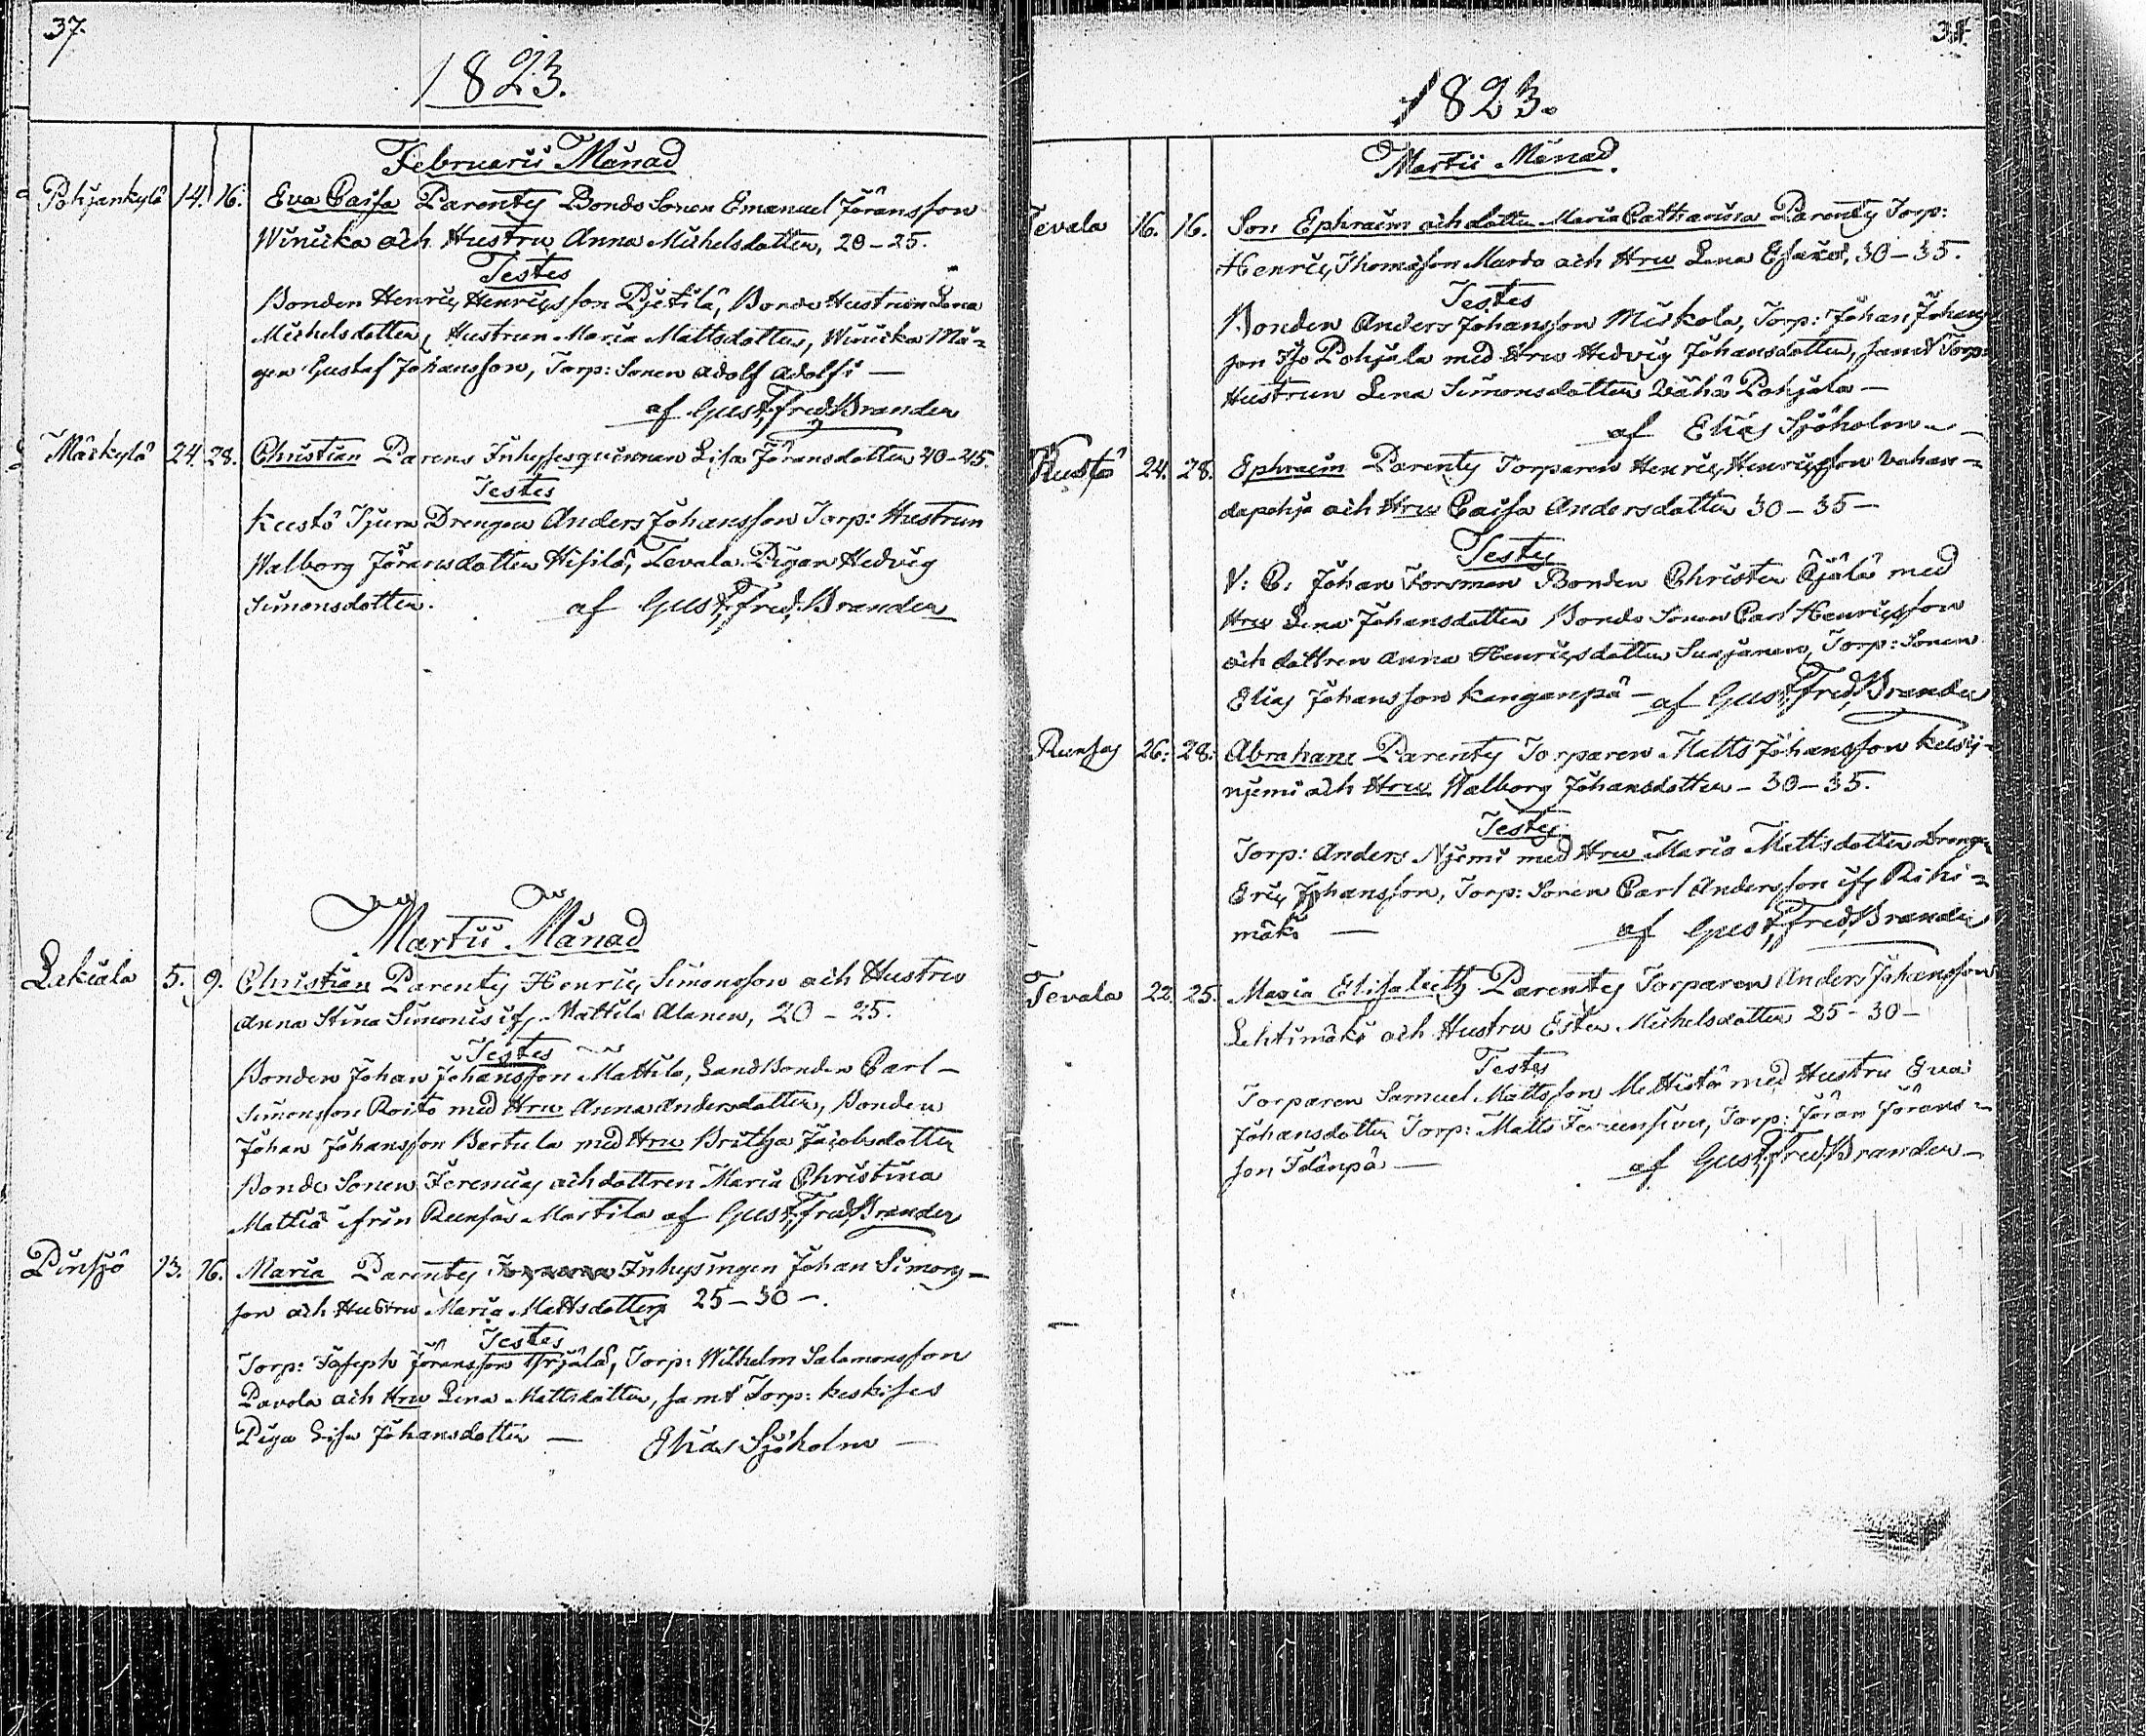 37.
1823.
Februarii Månad
Pohjankylä 14. 16. Eva Caisa Parentes Bonde Sonen Emanuel Jöransson
Winicka och Hustru Anna Michelsdotter, 20-25.
Testes
Bonden Henric Henricsson Pjetilä, Bonde Hustrun Lena
Michelsdotter, Hustrun Maria Mattsdotter, Winicka Må-
gen Gustaf Johansson, Torp: Sonen Adolf Adolfs
af Gust. Fred. Brander
24. 28. Christian Parens Inhysesqvinnan Lisa Jöransdotter 40-45.
Testes
Drengen Anders Johansson Torp: Hustrun
Walborg Jöransdotter Tevala Pigan Hedvig
Simonsdotter. af Gust. Fred. Brander
Martii Månad
Lakiala 5. 9. Christian Parentes Henric Simonsson och Hustru
Anna Stina Simonis if. Mattila Alanen, 20-25.
Testes
Bonden Johan Johansson Mattila, LandBonden Carl
Simonsson med Hru Anna Andersdotter, Bonden
Johan Johansson Bertula med Hru Britha Jacobsdotter
Bonde Sonen Jeremias och dottren Maria Christina
ifrån Martila af Gust. Fred. Brander
Pinsjö 13. 16. Maria Parentes Inhysingen Johan Simons-
son och Hustru Maria Mattsdotter 25-30-.
Testes
Torp: Joseph Jöransson Yrjälä, Torp: Wilhelm Salomonsson
Pavola och Hru Lena Mattsdotter, samt Torp:
Piga Lisa Johansdotter - Elias Sjöholm
1823.
Martii Månad.
Tevala 16. 16. Son Ephraim och dotter Maria Catharina Parentes Torp:
Henric Thomasson och Hru Lena 30-35.
Testes
Bonden Anders Johansson Mickola, Torp: Johan Johans
son Iso Pohjala med Hru Hedvig Johansdotter, samt Torp:
Hustrun Lena Simonsdotter Vähä Pohjala -
af Elias Sjöholm
24. 28. Ephraim Parentes Torparen Henric Henricsson Vahan-
dapohja och Hru Caisa Andersdotter 30-35-
Testes
V: C: Johan Forsman Bonden Christer med
Hru Lena Johansdotter Bonde Sonen Carl Henricsson
och dottren Anna Henricsdotter Torp: Sonen
Elias Johansson Kanganpä - af Gust. Fred. Brander
26. 28. Abraham Parentes Torparen Matts Johansson
njemi och Hru Walborg Johansdotter - 30-35.
Testes
Torp: Anders Njemi med Hru Maria Mattsdotter Dreng
Eric Johansson, Torp: Sonen Carl Andersson if. Rihi-
mäki - af Gust. Fred. Brander
Tevala 22. 25. Maria Elisabeth Parentes Torparen Anders Johansson
Lehtimäki och Hustru Ester Michelsdotter 25-30-
Testes
Torparen Samuel Mattsson Mettistö med Hustru Eva
Johansdotter Torp: Matts Torp: Jöran Jörans-
son Idänpä - af Gust. Fred. Brander